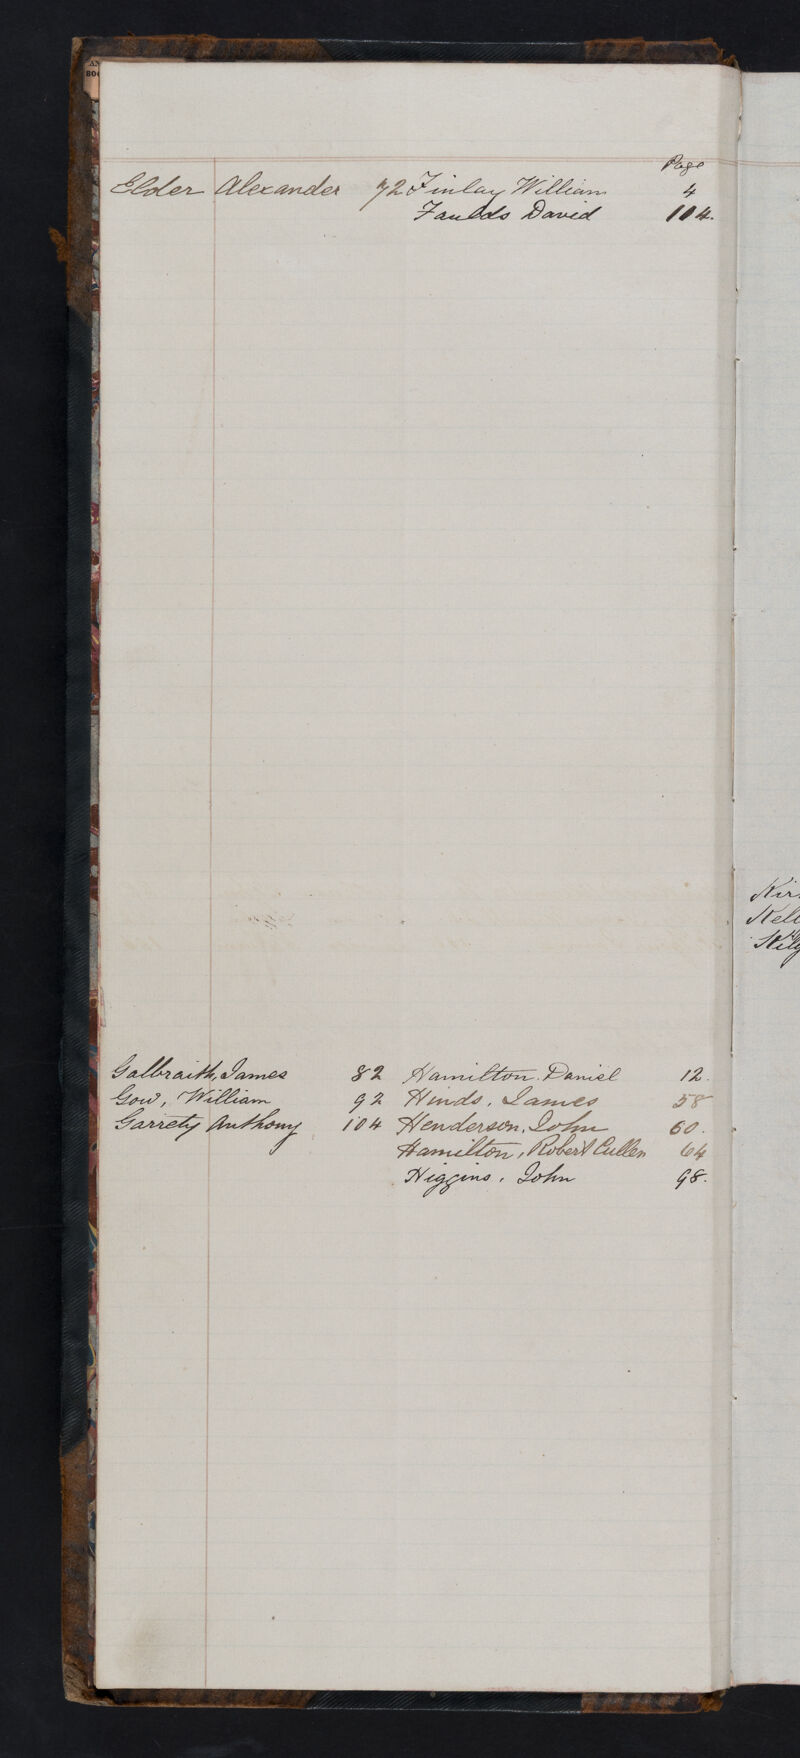 Page
Elder Alexander 72 Finlay William 4
Faulds David 104.
Galbraith, James 82 Hamilton. Daniel 12.
Gow, William 92 Hinds, James 58
Garrety Anthony 104 Henderson, John 60.
Hamilton, Robert Cullen 64
Higgins, John 98.